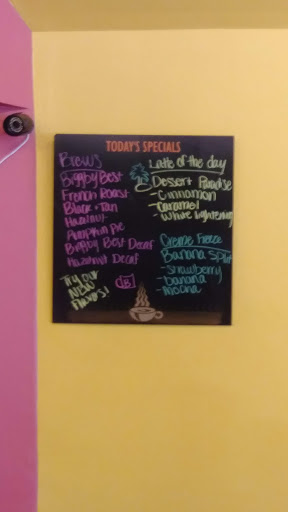 TODAY'S SPECIALS
Brews
Biggby Best
French Roast
Black + Tan
Hazelnut
Pumpkin Pie
Biggby Best Decaf
Hazelnut Decaf
Try our
NEW
Flavors!
B
Latte of the day
Dessert Paradise
- Cinnamon
- Caramel
- White Lightening
Creme Freeze
Banana Split
- Strawberry
- banana
- Mocha